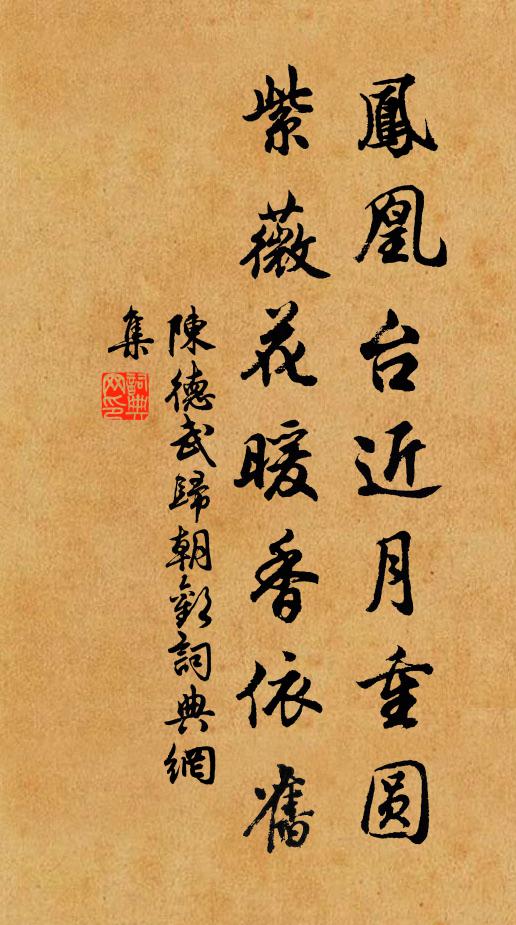 鳳凰台近月重圆
紫薇花暖香依舊
陳德武歸朝歡詞典網
集
詞典
网印